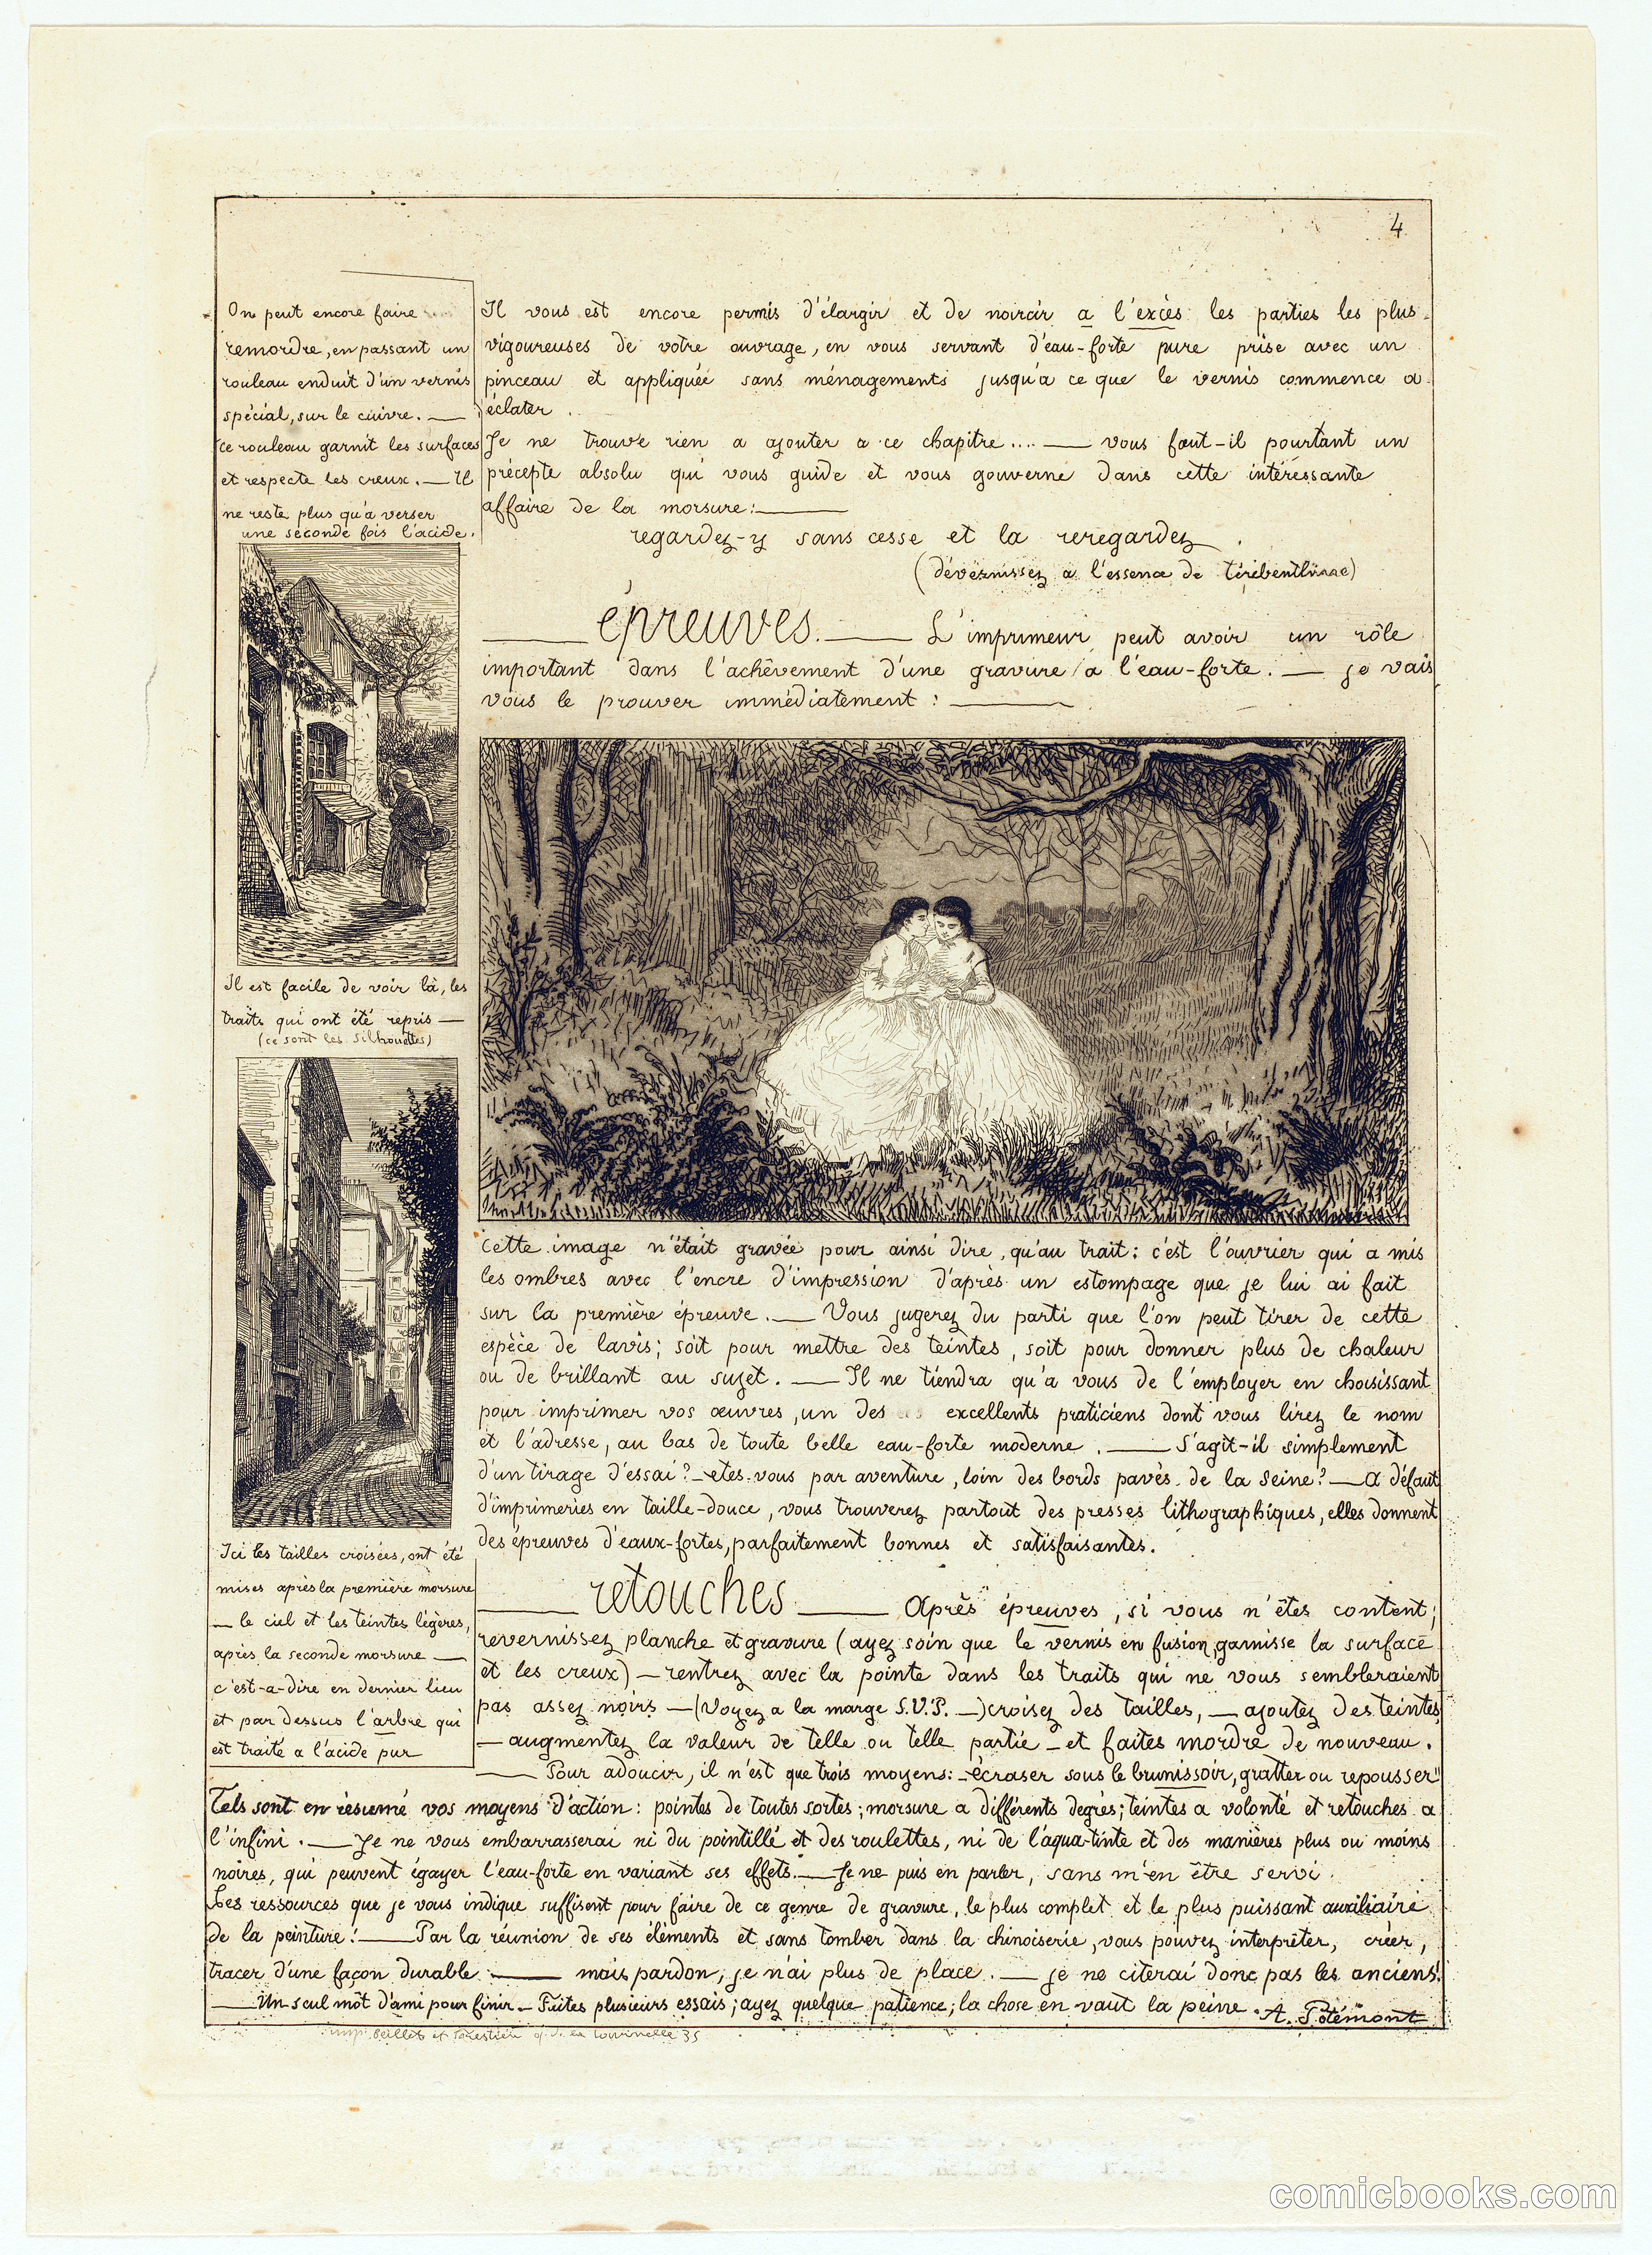 4
On peut encore faire
remordre, en passant un
rouleau enduit d'un vernis
spécial, sur le cuivre. —
ce rouleau garnit les surfaces
et respecte les creux. — Il
ne reste plus qu'à verser
une seconde fois l'acide.
Il est facile de voir là, les
traits qui ont été repris —
(ce sont les silhouettes)
Ici les tailles croisées, ont été
mises après la première morsure
— le ciel et les teintes légères,
après la seconde morsure —
c'est-a-dire en dernier lieu
et par dessus l'arbre qui
est traité a l'acide pur
Il vous est encore permis d'élargir et de noircir a l'excès les parties les plus
vigoureuses de votre ouvrage, en vous servant d'eau-forte pure prise avec un
pinceau et appliquée sans ménagements jusqu'a ce que le vernis commence a
éclater.
Je ne trouve rien a ajouter a ce chapitre.... — vous faut-il pourtant un
précepte absolu qui vous guide et vous gouverne dans cette intéressante
affaire de la morsure: —
regardez-y sans cesse et la reregardez.
(dévernissez a l'essence de térébenthine)
— épreuves. — L'imprimeur peut avoir un rôle
important dans l'achêvement d'une gravure a l'eau-forte. — je vais
vous le prouver immédiatement : —
cette image n'était gravée pour ainsi dire, qu'au trait: c'est l'ouvrier qui a mis
les ombres avec l'encre d'impression d'après un estompage que je lui ai fait
sur la première épreuve. — Vous jugerez du parti que l'on peut tirer de cette
espèce de lavis; soit pour mettre des teintes, soit pour donner plus de chaleur
ou de brillant au sujet. — Il ne tiendra qu'à vous de l'employer en choisissant
pour imprimer vos œuvres, un des excellents praticiens dont vous lirez le nom
et l'adresse, au bas de toute belle eau-forte moderne. — S'agit-il simplement
d'un tirage d'essai? — etes-vous par aventure, loin des bords pavés de la Seine? — a défaut
d'imprimeries en taille-douce, vous trouverez partout des presses lithographiques, elles donnent
des épreuves d'eaux-fortes, parfaitement bonnes et satisfaisantes.
— retouches — Après épreuves, si vous n'êtes content,
revernissez planche et gravure (ayez soin que le vernis en fusion, garnisse la surface
et les creux) — rentrez avec la pointe dans les traits qui ne vous sembleraient
pas assez noirs — (Voyez a la marge S.V.P. —) croisez des tailles, — ajoutez des teintes,
— augmentez la valeur de telle ou telle partie — et faites mordre de nouveau.
— Pour adoucir, il n'est que trois moyens: — écraser sous le brunissoir, gratter ou repousser"
Tels sont en résumé vos moyens d'action: pointes de toutes sortes; morsure a différents degrés; teintes a volonté et retouches a
l'infini. — Je ne vous embarrasserai ni du pointillé et des roulettes, ni de l'aqua-tinte et des manières plus ou moins
noires, qui peuvent égayer l'eau-forte en variant ses effets. — Je ne puis en parler, sans m'en être servi.
Les ressources que je vous indique suffisent pour faire de ce genre de gravure, le plus complet et le plus puissant auxiliaire
de la peinture! — Par la réunion de ses éléments et sans tomber dans la chinoiserie, vous pouvez interprêter, créer,
tracer d'une façon durable — mais pardon, je n'ai plus de place. — je ne citerai donc pas les anciens!
— Un seul môt d'ami pour finir — Faites plusieurs essais; ayez quelque patience; la chose en vaut la peine. A. Potémont
imp. Beillet et Forestier q. de la tournelle 35
comicbooks.com